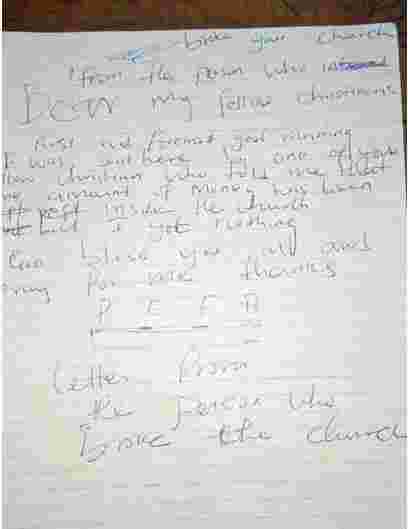 broke your church
"from the person who
Dear my fellow christians
First and foremost good morning
I was sent here by one of your
fellow christian who told me that
amount of money has been
left inside the church
but I got nothing
bless you all and
pray for me thanks
Letter from
the person who
broke the church